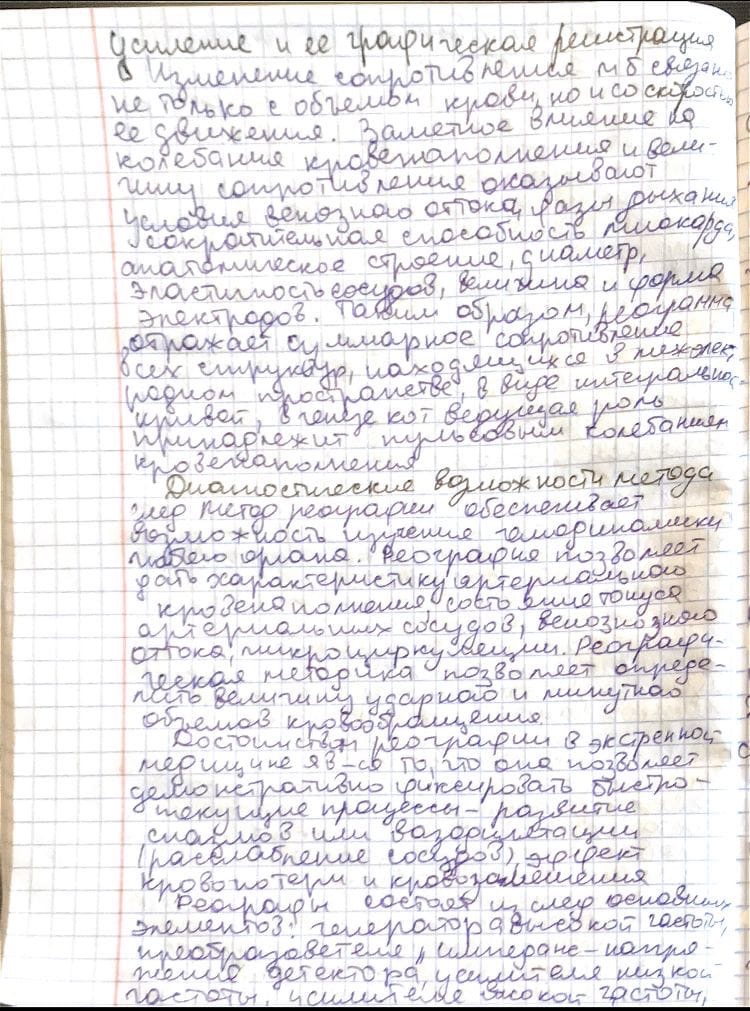 усиление и ее графическая регистрация
Изменение сопротивления м б связано
не только с объемом крови, но и со скоростью
ее движения. Заметное влияние на
колебания кровенаполнения и вели-
чину сопротивления оказывают
условия венозного оттока, фазы дыхания
сократительная способность миокарда,
анатомическое строение, диаметр,
эластичность сосудов, величина и форма
электродов. Таким образом, реограмма
отражает суммарное сопротивление
всех структур, находящихся в межэлект
родном пространстве, в виде интегральной
кривой, в генезе кот ведущая роль
принадлежит пульсовым колебаниям
кровенаполнения
Диагностические возможности метода
след метод реографии обеспечивает
возможность изучения гемодинамики
любого органа. Реография позволяет
дать характеристику артериального
кровенаполнения, состояние тонуса
артериальных сосудов, венозного
оттока, микроциркуляции. Реографи-
ческая методика позволяет опреде-
лить величину ударного и минутного
объемов кровообращения
Достоинством реографии в экстренной
медицине яв-ся то, что она позволяет
демонстративно фиксировать быстро-
текущие процессы - развитие
спазмов или вазодилятации
(расслабление сосудов), эффект
кровопотери и кровозамещения
Реографы состоят из след основных
элементов: генератора высокой частоты,
преобразователя "импеданс-напря-
жение детектора, усилителя низкой
частоты, усилителя высокой частоты,